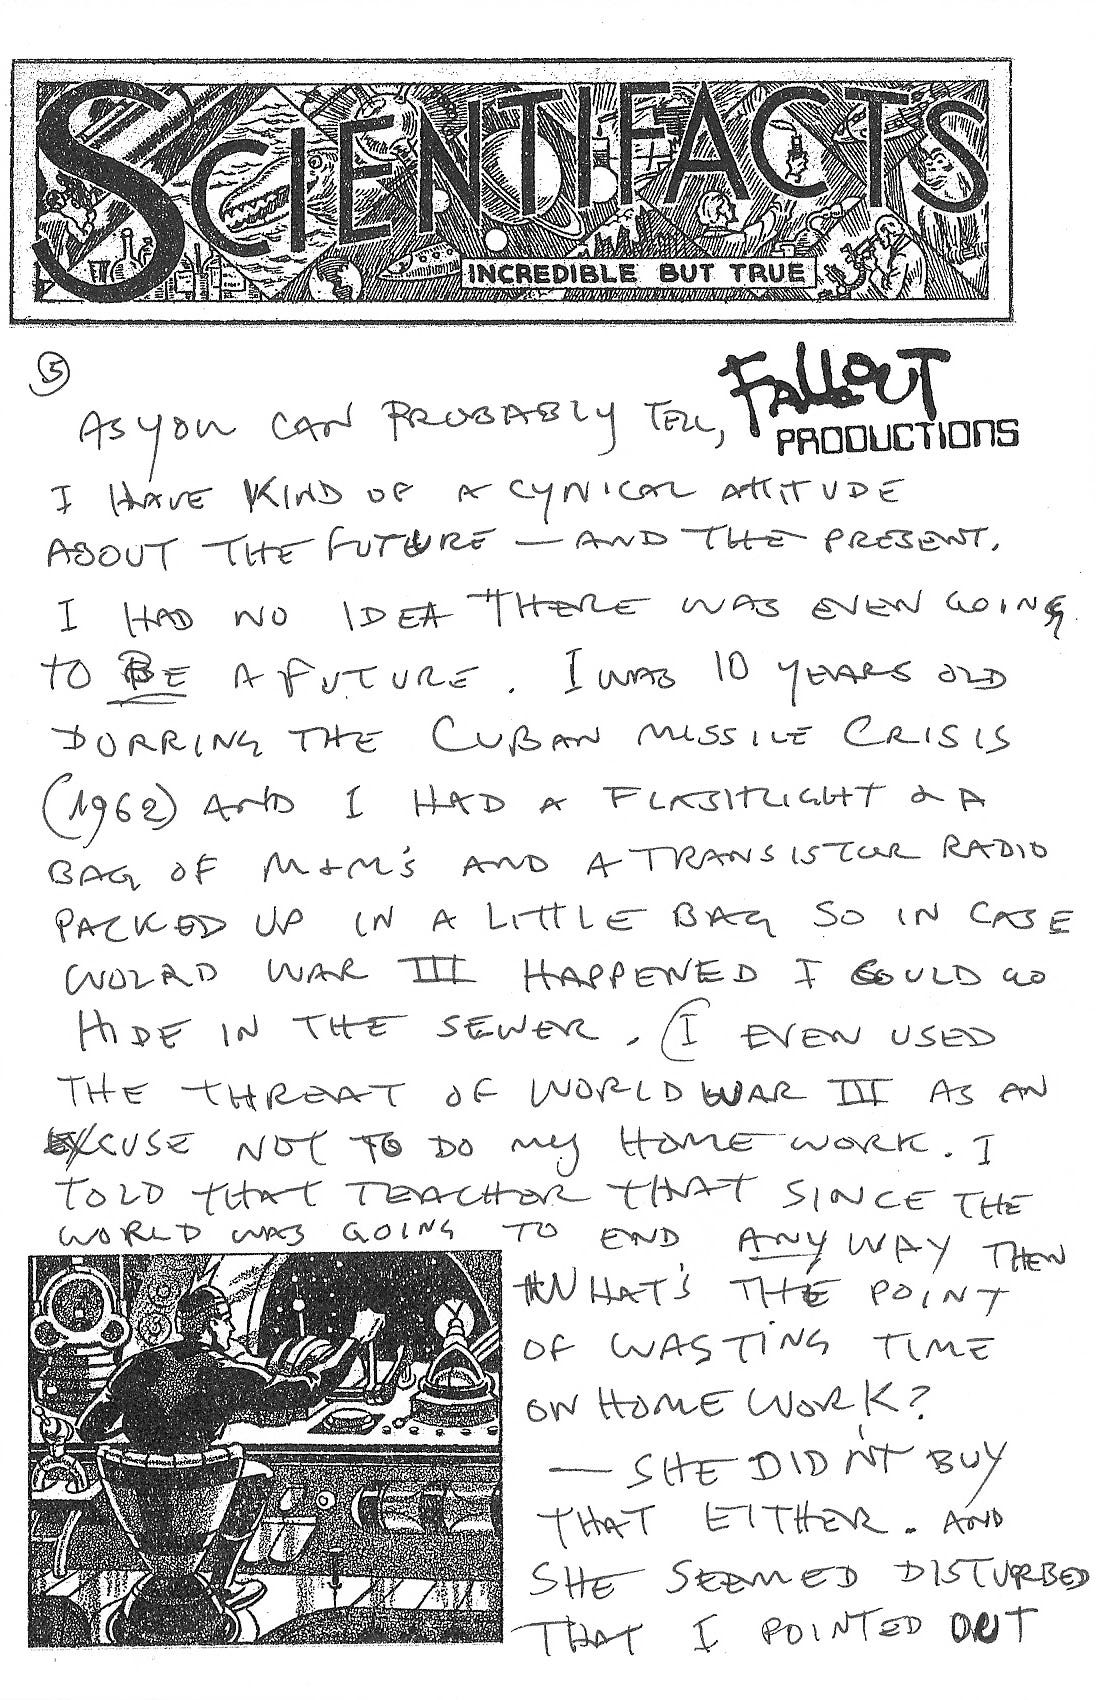 SCIENTIFACTS
INCREDIBLE BUT TRUE
5
FALLOUT
PRODUCTIONS
AS YOU CAN PROBABLY TELL,
I HAVE KIND OF A CYNICAL ATTITUDE
ABOUT THE FUTURE — AND THE PRESENT.
I HAD NO IDEA THERE WAS EVEN GOING
TO BE A FUTURE. I WAS 10 YEARS OLD
DURRING THE CUBAN MISSILE CRISIS
(1962) AND I HAD A FLASHLIGHT & A
BAG OF M+M'S AND A TRANSISTOR RADIO
PACKED UP IN A LITTLE BAG SO IN CASE
WOLRD WAR III HAPPENED I COULD GO
HIDE IN THE SEWER. (I EVEN USED
THE THREAT OF WORLD WAR III AS AN
EXCUSE NOT TO DO MY HOME WORK. I
TOLD THAT TEACHER THAT SINCE THE
WORLD WAS GOING TO END ANY WAY THEN
WHAT'S THE POINT
OF WASTING TIME
ON HOME WORK?
— SHE DIDN'T BUY
THAT EITHER. AND
SHE SEEMED DISTURBED
THAT I POINTED OUT